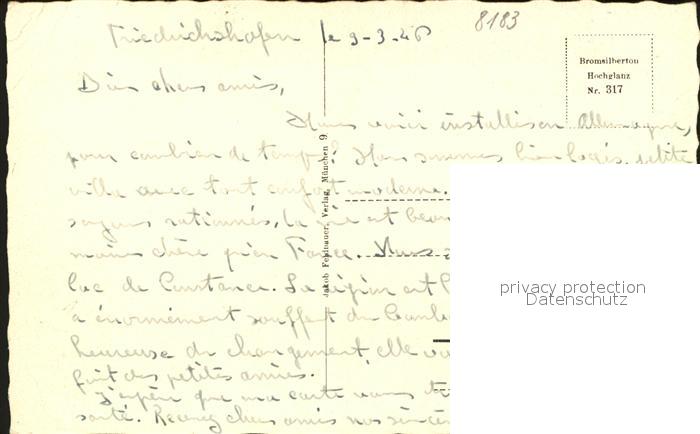 8183
Friedrichshafen le 9-3-46
Bromsilberton
Hochglanz
Nr. 317
Bien chers amis,
Nous voici installés en Allemagne,
pour combien de temps? Nous sommes bien logés, petite
villa avec tout confort moderne.
soyons rationnés, la vie est
moins chère qu'en France. Nous
lac de Constance. La région est
a énormément souffert du
heureuse du changement, elle
fait des petites amies.
J'espère que ma carte vous
santé. Recevez chers amis nos
Jakob Feldbauer, Verlag, München 9
privacy protection
Datenschutz